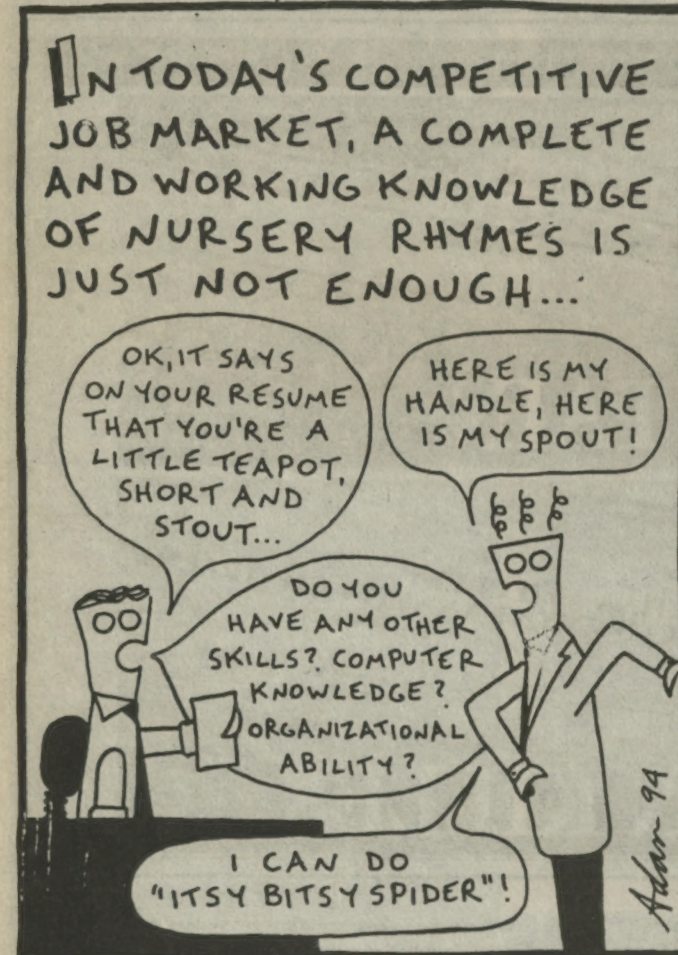 IN TODAY'S COMPETITIVE
JOB MARKET, A COMPLETE
AND WORKING KNOWLEDGE
OF NURSERY RHYMES IS
JUST NOT ENOUGH...
OK, IT SAYS
ON YOUR RESUME
THAT YOU'RE A
LITTLE TEAPOT,
SHORT AND
STOUT...
HERE IS MY
HANDLE, HERE
IS MY SPOUT!
DO YOU
HAVE ANY OTHER
SKILLS? COMPUTER
KNOWLEDGE?
ORGANIZATIONAL
ABILITY?
I CAN DO
"ITSY BITSY SPIDER"!
Adam 94